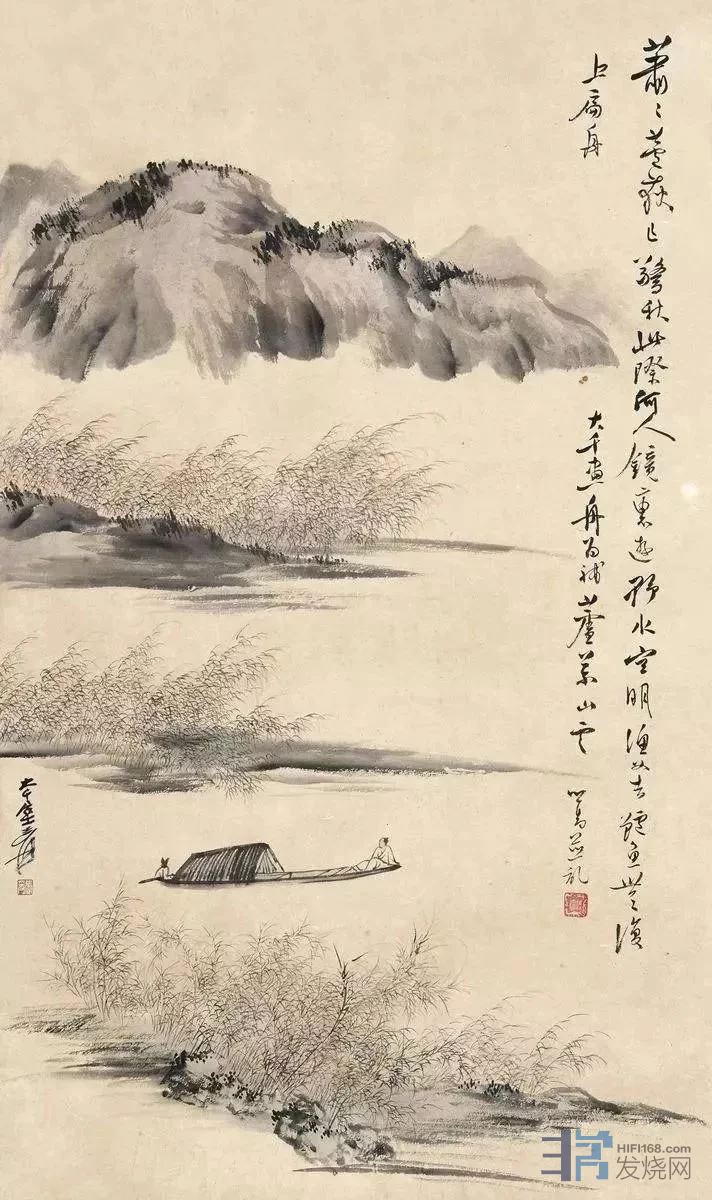 蕭〻蘆荻已驚秋此際何人鏡裏遊野水空明漁父去鱸魚無復
上扁舟
大千畫舟為補蘆山雲
心畬並記
大千居士爰
HIFI168.com
发烧网